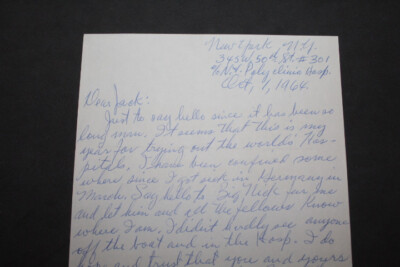 New York, N.Y.
345 W. 50th St. # 301
% N.Y. Polyclinic Hosp.
Oct, 1, 1964.
Dear Jack:
Just to say hello since it has been so
long now. It seems that this is my
year for trying out the world's Hos-
pitals. I have been confined some
where since I got sick in Germany in
March. Say hello to Big Nick for me
and let him and all the fellows know
where I am. I didn't hardly see anyone
off the boat and in the Hosp. I do
hope and trust that you and yours